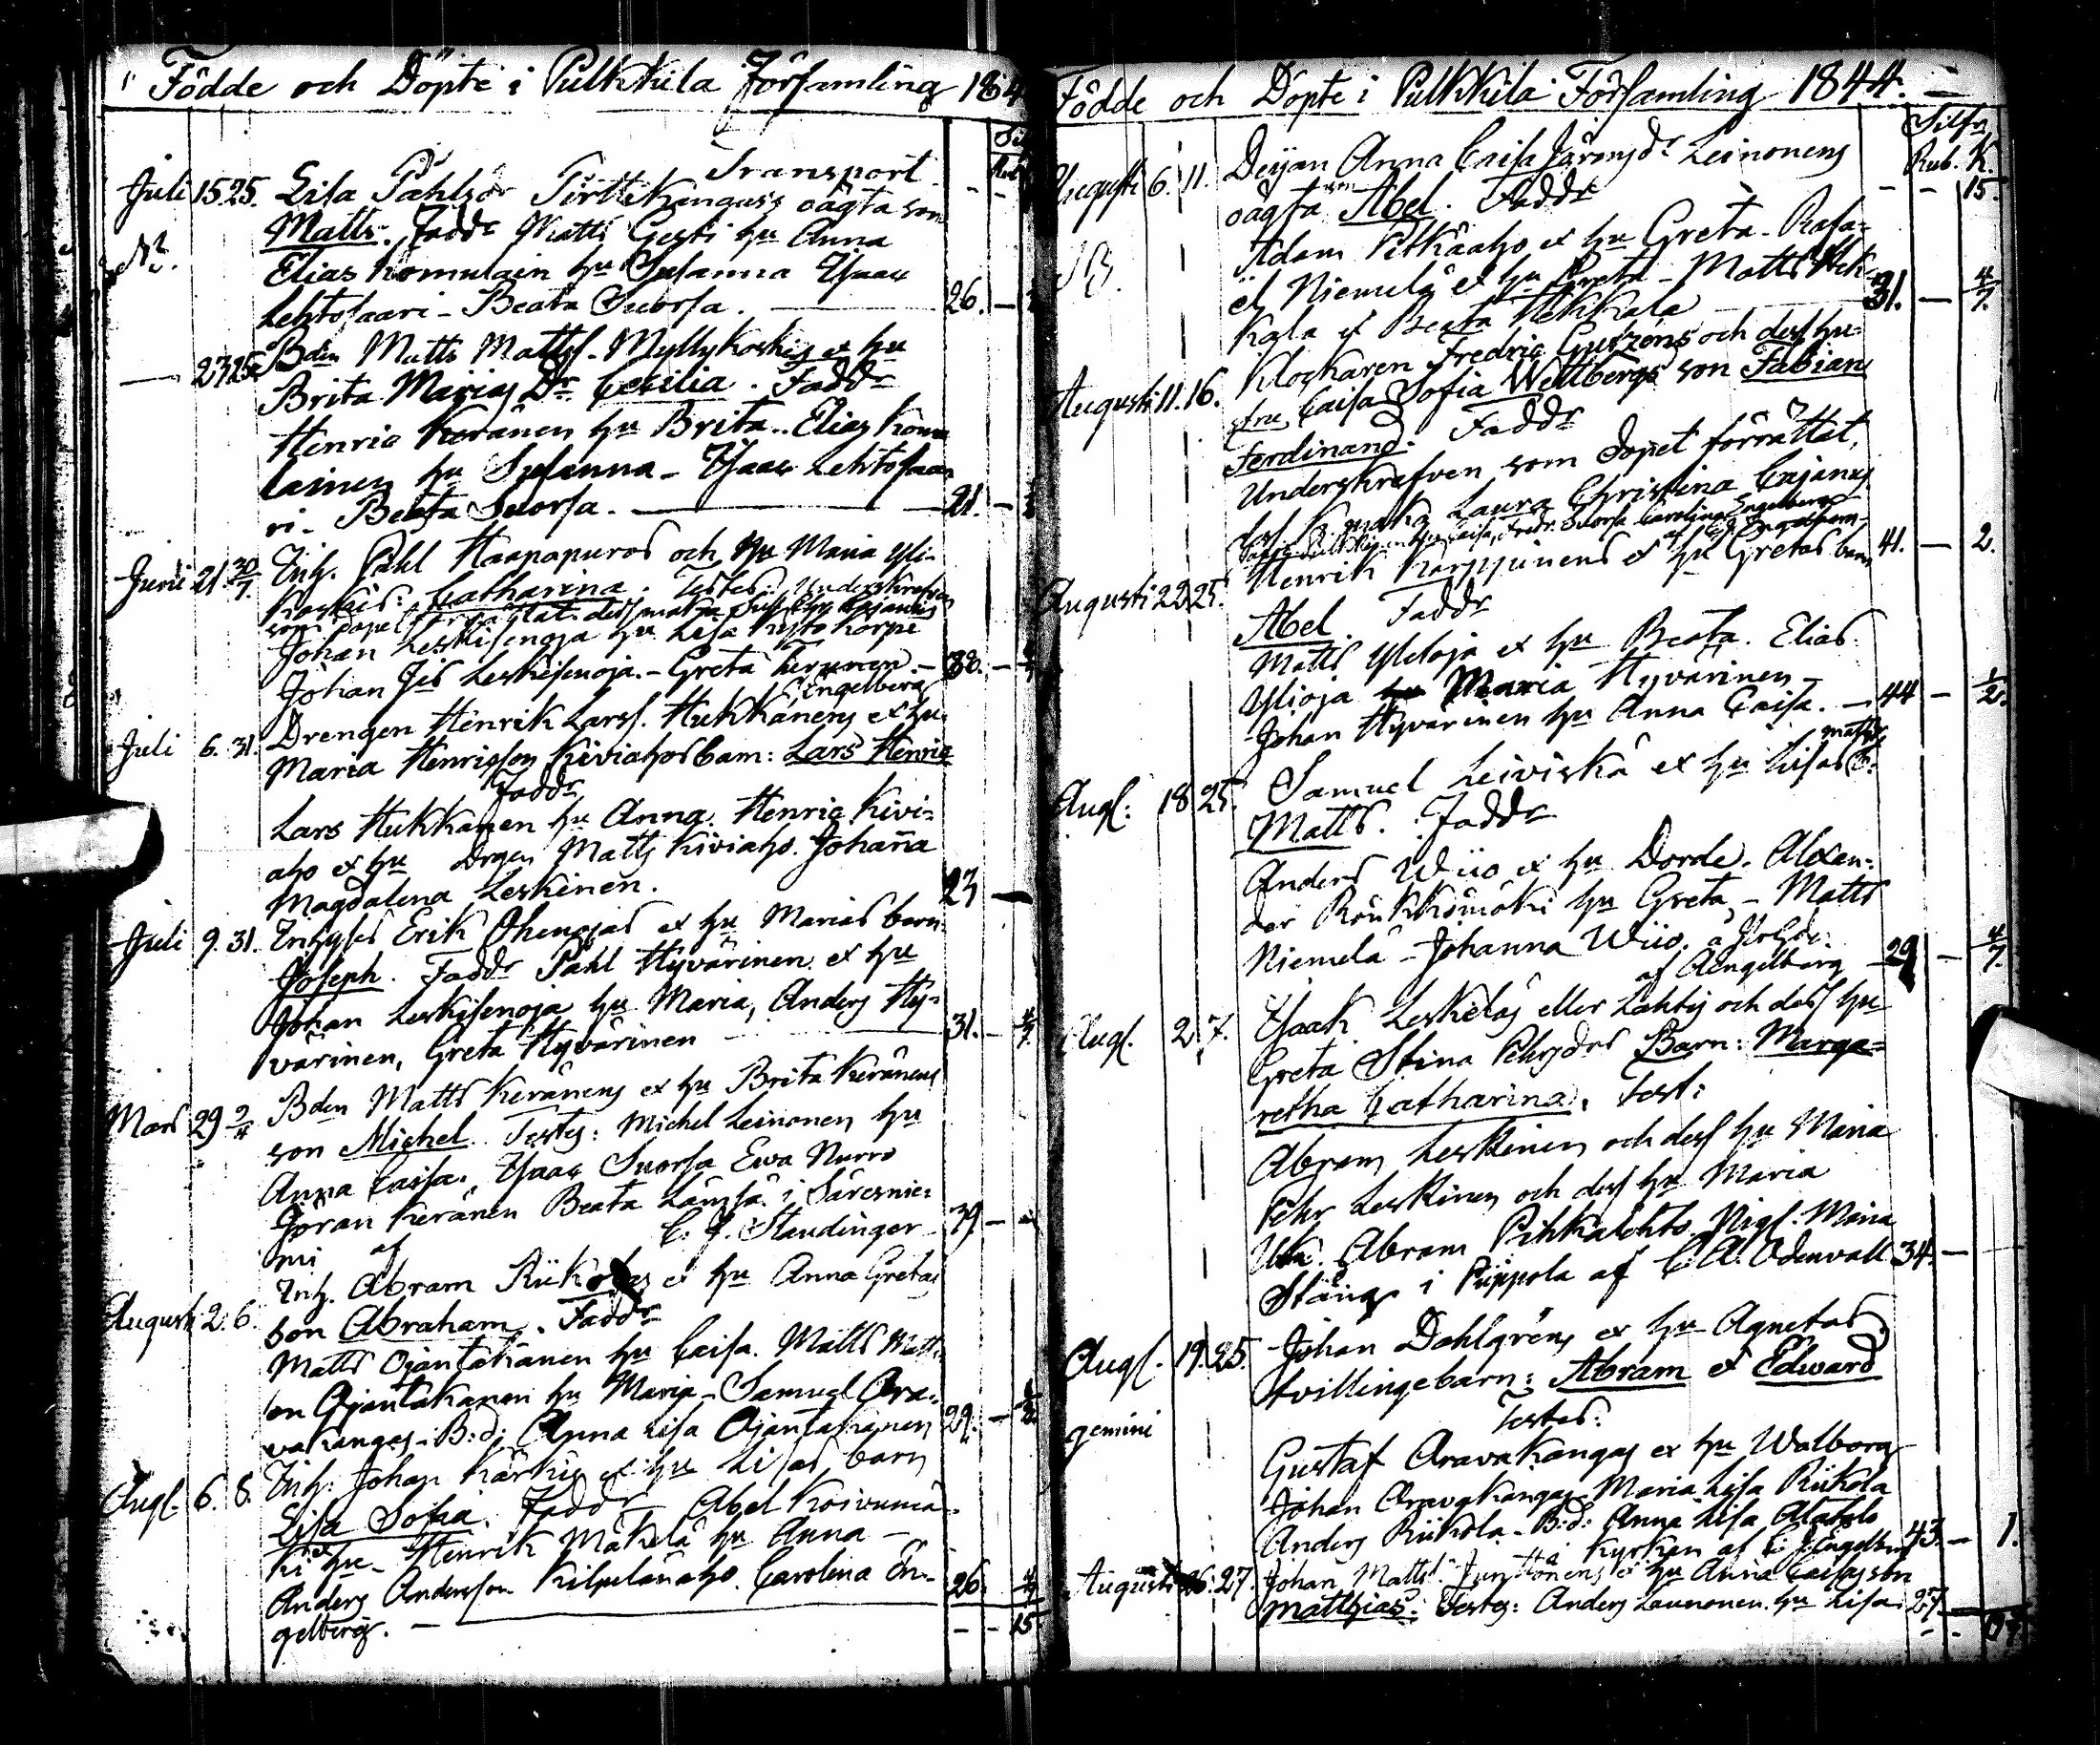 Födde och Döpte i Pulkkila Församling 184
Transport
Juli 15 25. Lisa Påhlsdr Pirttikangass oägta son
Matts. Faddr Matts Gesti hu Anna
Elias Komulain hu Susanna Isaac
Lehtosaari - Beata Suorsa. 26.
— 23 25 Bdn Matts Mattss. Myllykoskis et hu
Brita Marias Dr Cecilia. Faddr
Henric Keränen hu Brita.. Elias Komu
lainen hu Susanna - Isaac Lehtosaa
ri - Beata Suorsa. 21.
Juni 21 30/7 Inh. Påhl Haapapuros och hu Maria Yli-
koskis: Catharina. Testes: Underskrefven
som dopet
Johan Leskisenoja hu Lisa
Johan Jis Leskisenoja. - Greta - 30.
Engelberg
Juli 6. 31. Drengen Henrik Larss. Hukkanens et hu
Maria Henricsson Kiviahos barn: Lars Henric
Faddr
Lars Hukkanen hu Anna. Henric Kivi-
aho et hu Drgen Matts Kiviaho. Johana
Magdalena Leskinen. 23
Juli 9. 31. Inhyses Erik Ohenojas et hu Marias barn
Joseph. Faddr Påhl Hyvärinen et hu
Johan Leskisenoja hu Maria, Anders Hy-
värinen, Greta Hyvärinen 31. - 4/7.
Mars 29 2/4 Bden Matts Keränens et hu Brita Keränens
son Michel. Testes: Michel Leinonen hu
Anna Caisa., Isaac Suorsa Ewa Nurro
Göran Keränen Beata Lämsä i Säresnie-
mi af C. J. Staudinger 39.
Augusti 2. 6. Inh. Abram Riikolas et hu Anna Gretas
son Abraham. Faddr
Matts Ojantakanen hu Caisa. Matts Matts
on Ojantakanen hu Maria - Samuel Ara-
vakangas - B:d: Anna Lisa Ojantakanen 29.
Augs. 6. 8. Inh: Johan Kärkis et hu Lisas barn
Lisa Sofia. Faddr Abel Koivumä-
ki et hu - Henrik Mäkelä hu Anna -
Anders Andersson Kilpelänaho. Carolina En-
gelberg. — 26. 4/7
15
Födde och Döpte i Pulkkila Församling 1844.
Silfr
Rub. K.
Augusti 6. 11. Deijan Anna Caisa Göransdr Leinonens
15.
oägta son Abel. Faddr
Adam Pitkäaho et hu Greta - Rafa-
el Niemelä et hu Greta - Matts Hek-
kala et Beata Hekkala 31. — 4/7.
Augusti 11. 16. Klockaren Fredric Gustrens och dess hu-
stru Caisa Sofia Wettbergs son Fabian
Ferdinand. Faddr
Underskrefven som dopet förrättat,
dess maka Laura Christina Cajanus
Caisa, Fredr. Suorsa Carolina Engelberg
41. — 2.
Augusti 22 25. Henrik Karppinens et hu Gretas barn
Abel Faddr
Matts Ylioja et hu Beata. Elias
Ylioja Maria Hyvärinen -
Johan Hyvärinen hu Anna Caisa. — 44 — 1/2.
Augs: 18 25. Samuel Leiviskä et hu Lisas
Matts. Faddr
Anders Wiio et hu Dorde. Alexan-
der Rönkkömäki hu Greta - Matts
Niemelä - Johanna Wiio.
af Aengelberg 29 — 4/7.
Augs. 2 7. Isaak Leskeläs eller Lahtis och dess hu
Greta Stina Pehrsdrs Barn: Marga-
retha Catharina. Test:
Abram Leskinen och dess hu Maria
Pehr Leskinen och dess hu Maria
Utk. Abram Pihkalehto. Pigs. Maria
Stång i Piippola af C. A. Odenvall 34. —
Augs. 19. 25. Johan Dahlgrens et hu Agnetas
gemini tvillingebarn: Abram et Edward
Testes:
Gustaf Aravakangas et hu Walborg
Johan Aravakangas Maria Lisa Riikola
Anders Riikola - B:d: Anna Lisa Alatalo
i kyrkan af C J Engelberg 43. — 1.
Augusti 26. 27. Johan Matts. Junttonens et hu Anna Caisas son
Matthias: Testes: Anders Launonen hu Lisa. 27 —